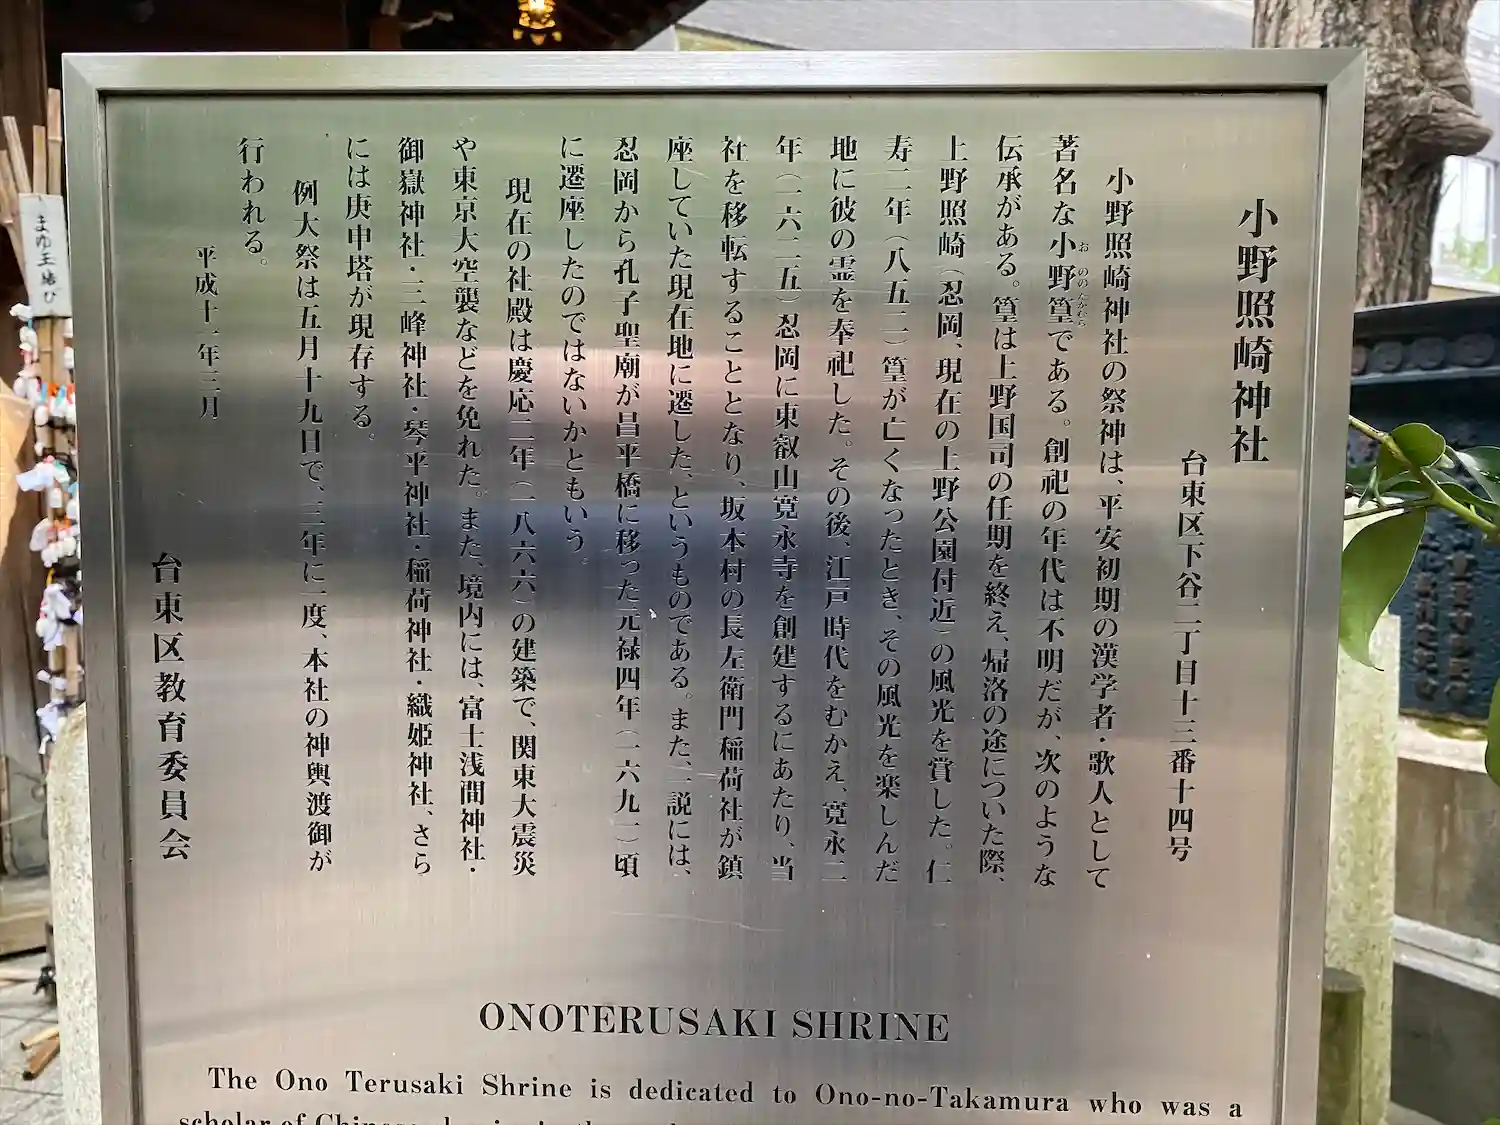 小野照崎神社
台東区下谷二丁目十三番十四号
小野照崎神社の祭神は、平安初期の漢学者・歌人として
著名な小野篁である。創祀の年代は不明だが、次のような
お ののたかむら
伝承がある。篁は上野国司の任期を終え、帰洛の途についた際、
上野照崎(忍岡、現在の上野公園付近)の風光を賞した。仁
寿二年(八五二)篁が亡くなったとき、その風光を楽しんだ
地に彼の霊を奉祀した。その後、江戸時代をむかえ、寛永二
年(一六二五)忍岡に東叡山寛永寺を創建するにあたり、当
社を移転することとなり、坂本村の長左衛門稲荷社が鎮
座していた現在地に遷した、というものである。また、一説には、
忍岡から孔子聖廟が昌平橋に移った元禄四年(一六九一)頃
に遷座したのではないかともいう。
現在の社殿は慶応二年(一八六六)の建築で、関東大震災
や東京大空襲などを免れた。また、境内には、富士浅間神社・
御嶽神社・三峰神社・琴平神社・稲荷神社・織姫神社、さら
には庚申塔が現存する。
例大祭は五月十九日で、三年に一度、本社の神輿渡御が
行われる。
平成十一年三月
台東区教育委員会
ONOTERUSAKI SHRINE
The Ono Terusaki Shrine is dedicated to Ono-no-Takamura who was a
scholar of Chinese
まゆ玉結び